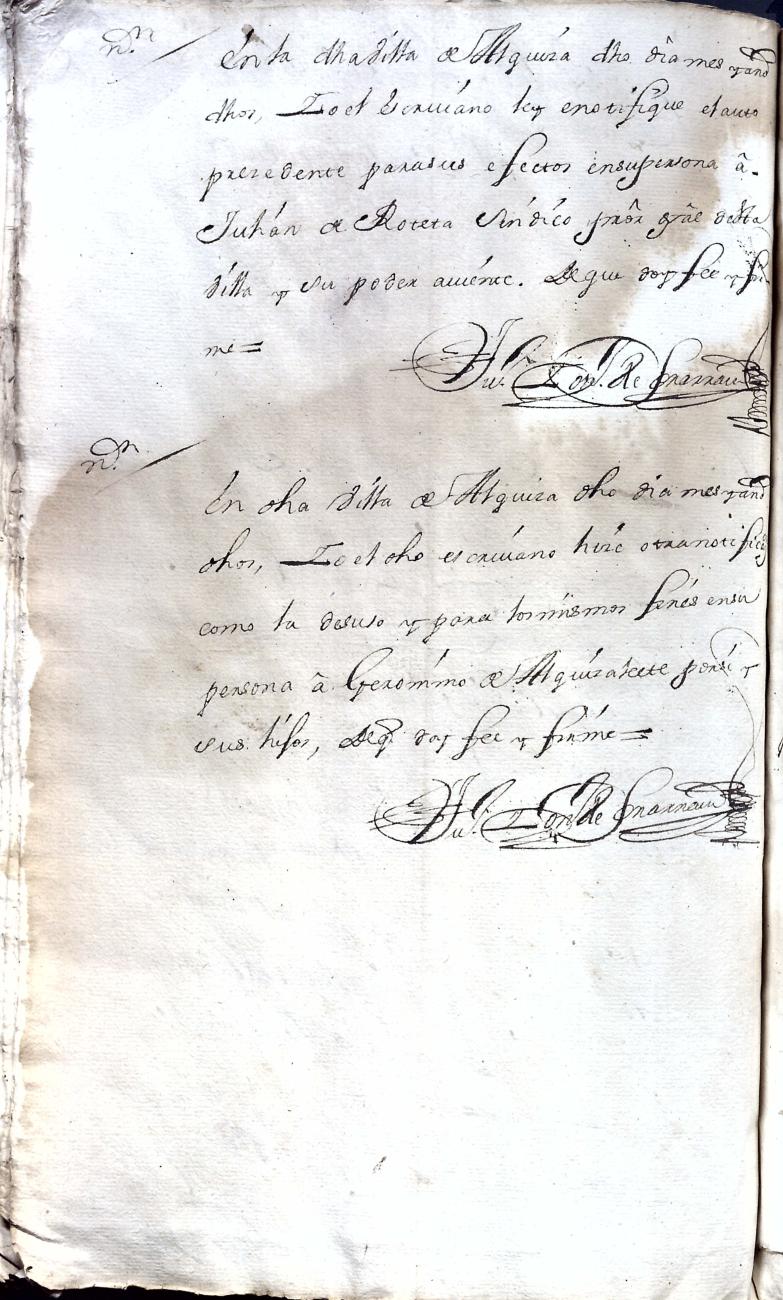 n.n
En la dha Villa de Alquiza dho dia mes y año
dhos, Yo el Escriuano ley e notifique el auto
prezedente para sus efectos en su persona â
Juhan de Roteta Sindico prõr grãl desta
Villa y su poder auiente. De que doy fee y fir
me=
de Ynarrau
n.n
En dha Villa de Alquiza dho dia mes y año
dhos, Yo el dho escriuano hize otra notific
como la desuso y para los mismos fenes en su
persona â Geronimo de Alquizalete por si y
sus hijos, de q doy fee y firme=
de Ynarrau